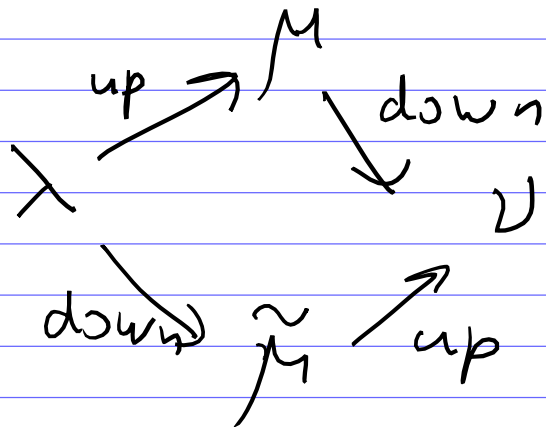 μ
up
down
λ
ν
down
μ̃
up